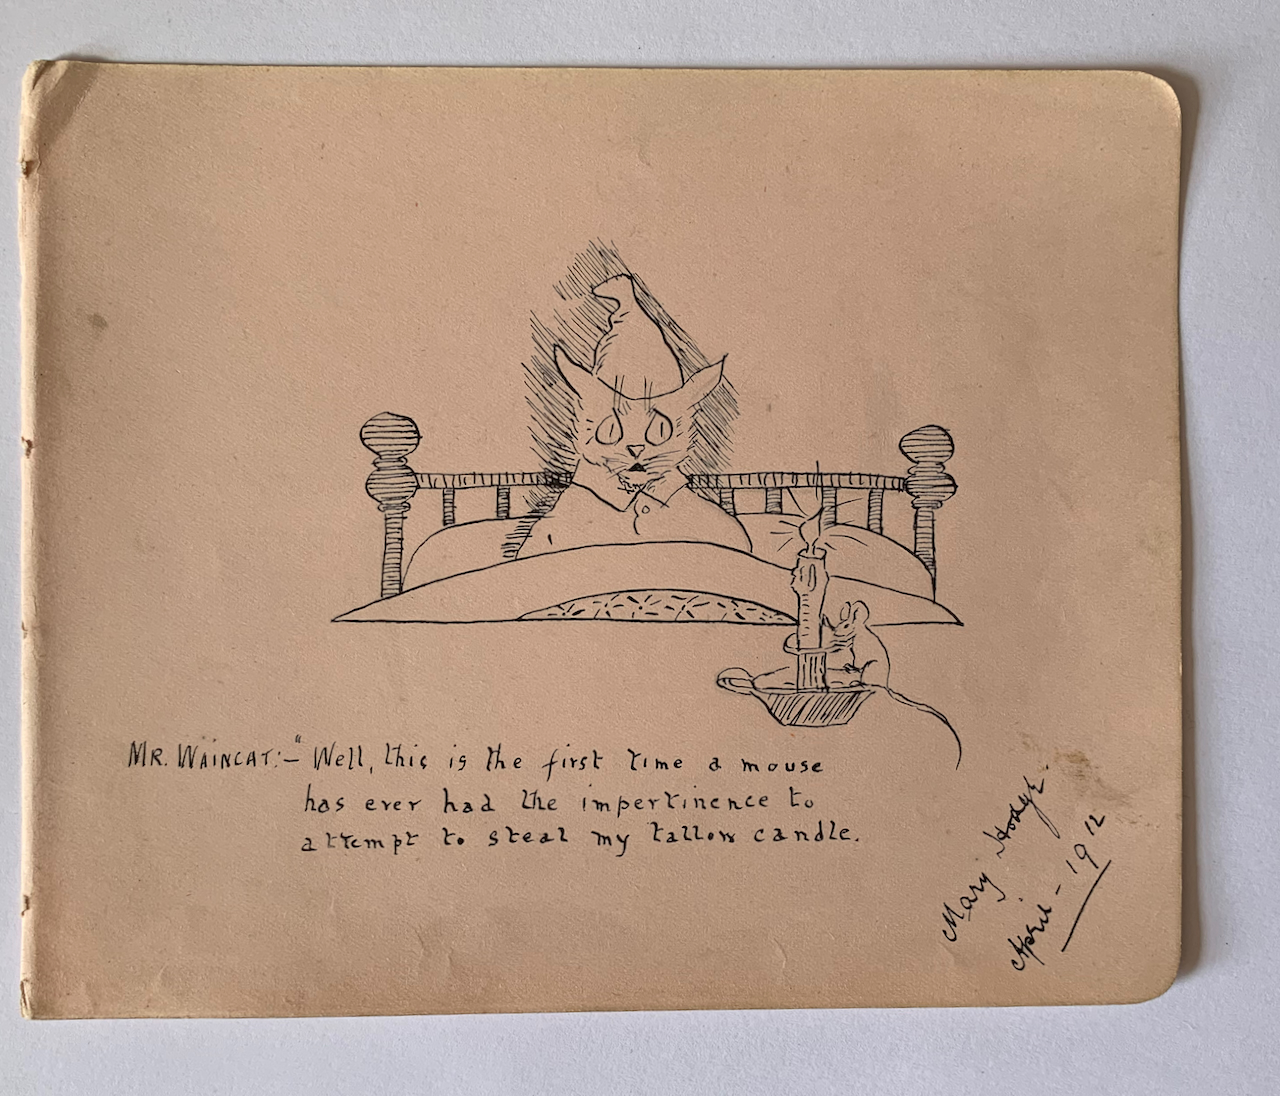 MR. WAINCAT:- "Well, this is the first time a mouse
has ever had the impertinence to
attempt to steal my tallow candle.
Mary Hodge.
April - 1912